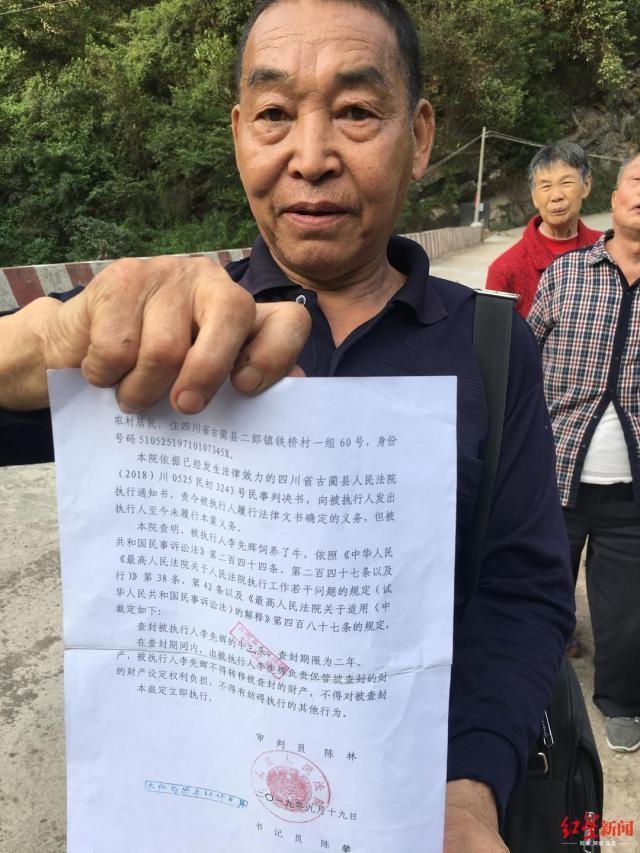 农村居民，住四川省古蔺县二郎镇铁桥村一组60号，身份
号码51052519710107345X。
本院依据已经发生法律效力的四川省古蔺县人民法院
（2018）川0525民初3243号民事判决书，向被执行人发出
执行通知书，责令被执行人履行法律文书确定的义务，但被
执行人至今未履行本案义务。
本院查明，被执行人李先辉饲养了牛，依照《中华人民
共和国民事诉讼法》第二百四十四条、第二百四十七条以及
《最高人民法院关于人民法院执行工作若干问题的规定（试
行）》第38条、第42条以及《最高人民法院关于适用〈中
华人民共和国民事诉讼法〉的解释》第四百八十七条的规定，
裁定如下：
查封被执行人李先辉的牛三头，查封期限为二年。
在查封期间内，由被执行人李先辉负责保管被查封的财
产，被执行人李先辉不得转移被查封的财产，不得对被查封
的财产设定权利负担，不得有妨碍执行的其他行为。
本裁定立即执行。
审判员 陈林
二〇一九年九月十九日
书记员 陈攀
本件与原本核对无异
红星新闻